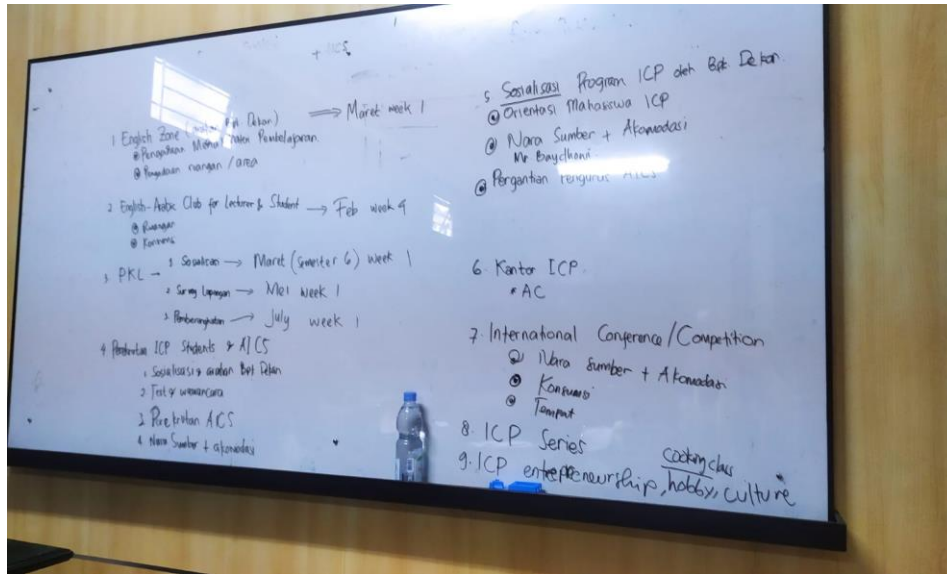 1 English Zone (arahan Bpk Dekan) ⟹ Maret week 1
Pengadaan Pembelajaran
Pengadaan ruangan / area
2 English-Arabic Club for Lecturer & Student → Feb week 4
Ruangan
Konsums
3. PKL - 1 Sosialisasi → Maret (Semester 6) week 1
2 Survey Lapangan → Mei week 1
3 Pemberangkatan → July week 1
4 Perekrutan ICP Students & AICS
1 Sosialisasi & arahan Bpk Dekan
2 Test & wawancara
3 Perekrutan ACS
4 Nara Sumber + akomodasi
5 Sosialisasi Program ICP oleh Bpk. Dekan.
Orientasi Mahasiswa ICP
Nara Sumber + Akomodasi
Mr Baydhoni
Pergantian Pengurus AICS
6. Kantor ICP.
AC
7. International Conference / Competition
Nara Sumber + Akomodasi
Konsumsi
Tempat
8. ICP Series
cooking class
9. ICP entrepreneurship, hobby, culture